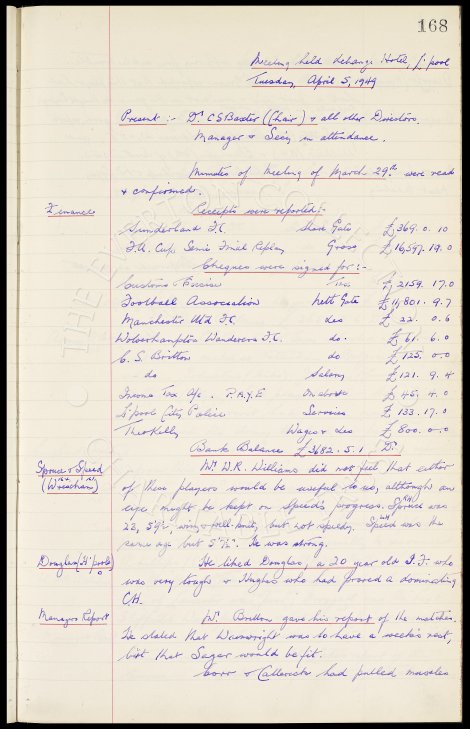 168
Meeting held Exchange Hotel, L'pool
Tuesday, April 5, 1949
Present :- Dr. C S Baxter (Chair) & all other Directors.
Manager & Secy in attendance.
Minutes of Meeting of March 29th were read
& confirmed.
Finance Receipts were reported:-
Sunderland F.C. Share Gate £369. 0. 10
F.A. Cup Semi Final Replay Gross £16,597. 19. 0
Cheques were signed for :-
Customs & Excise Tax £ 2159. 17. 0
Football Association Nett Gate £11,801. 9. 7
Manchester Utd F.C. do £ 22. 0. 6
Wolverhampton Wanderers F.C. do. £ 61. 6. 0
C. S. Britton do £125. 0. 0
do Salary £121. 9. 4
Income Tax A/c. P.A.Y.E £ 45. 4. 0
L'pool City Police Services £ 133. 17. 0
Theo Kelly Wages & £ 800. 0. 0
Bank Balance £3682. 5. 1 Dr.
Spruce & Speed Mr. W.R. Williams did not feel that either
(Wrexham) of these players would be useful to us, although an
eye might be kept on Speed's progress. Spruce was
23, & but not speedy. Speed was the
same age but He was strong.
Douglas (H'pools) He liked Douglas, a 20 year old I.F. who
was very tough & Hughes who had proved a dominating
C.H.
Managers Report Mr. Britton gave his report of the matches.
He stated that Wainwright was to have a week's rest,
but that Sagar would be fit.
Corr & Catterick had pulled muscles